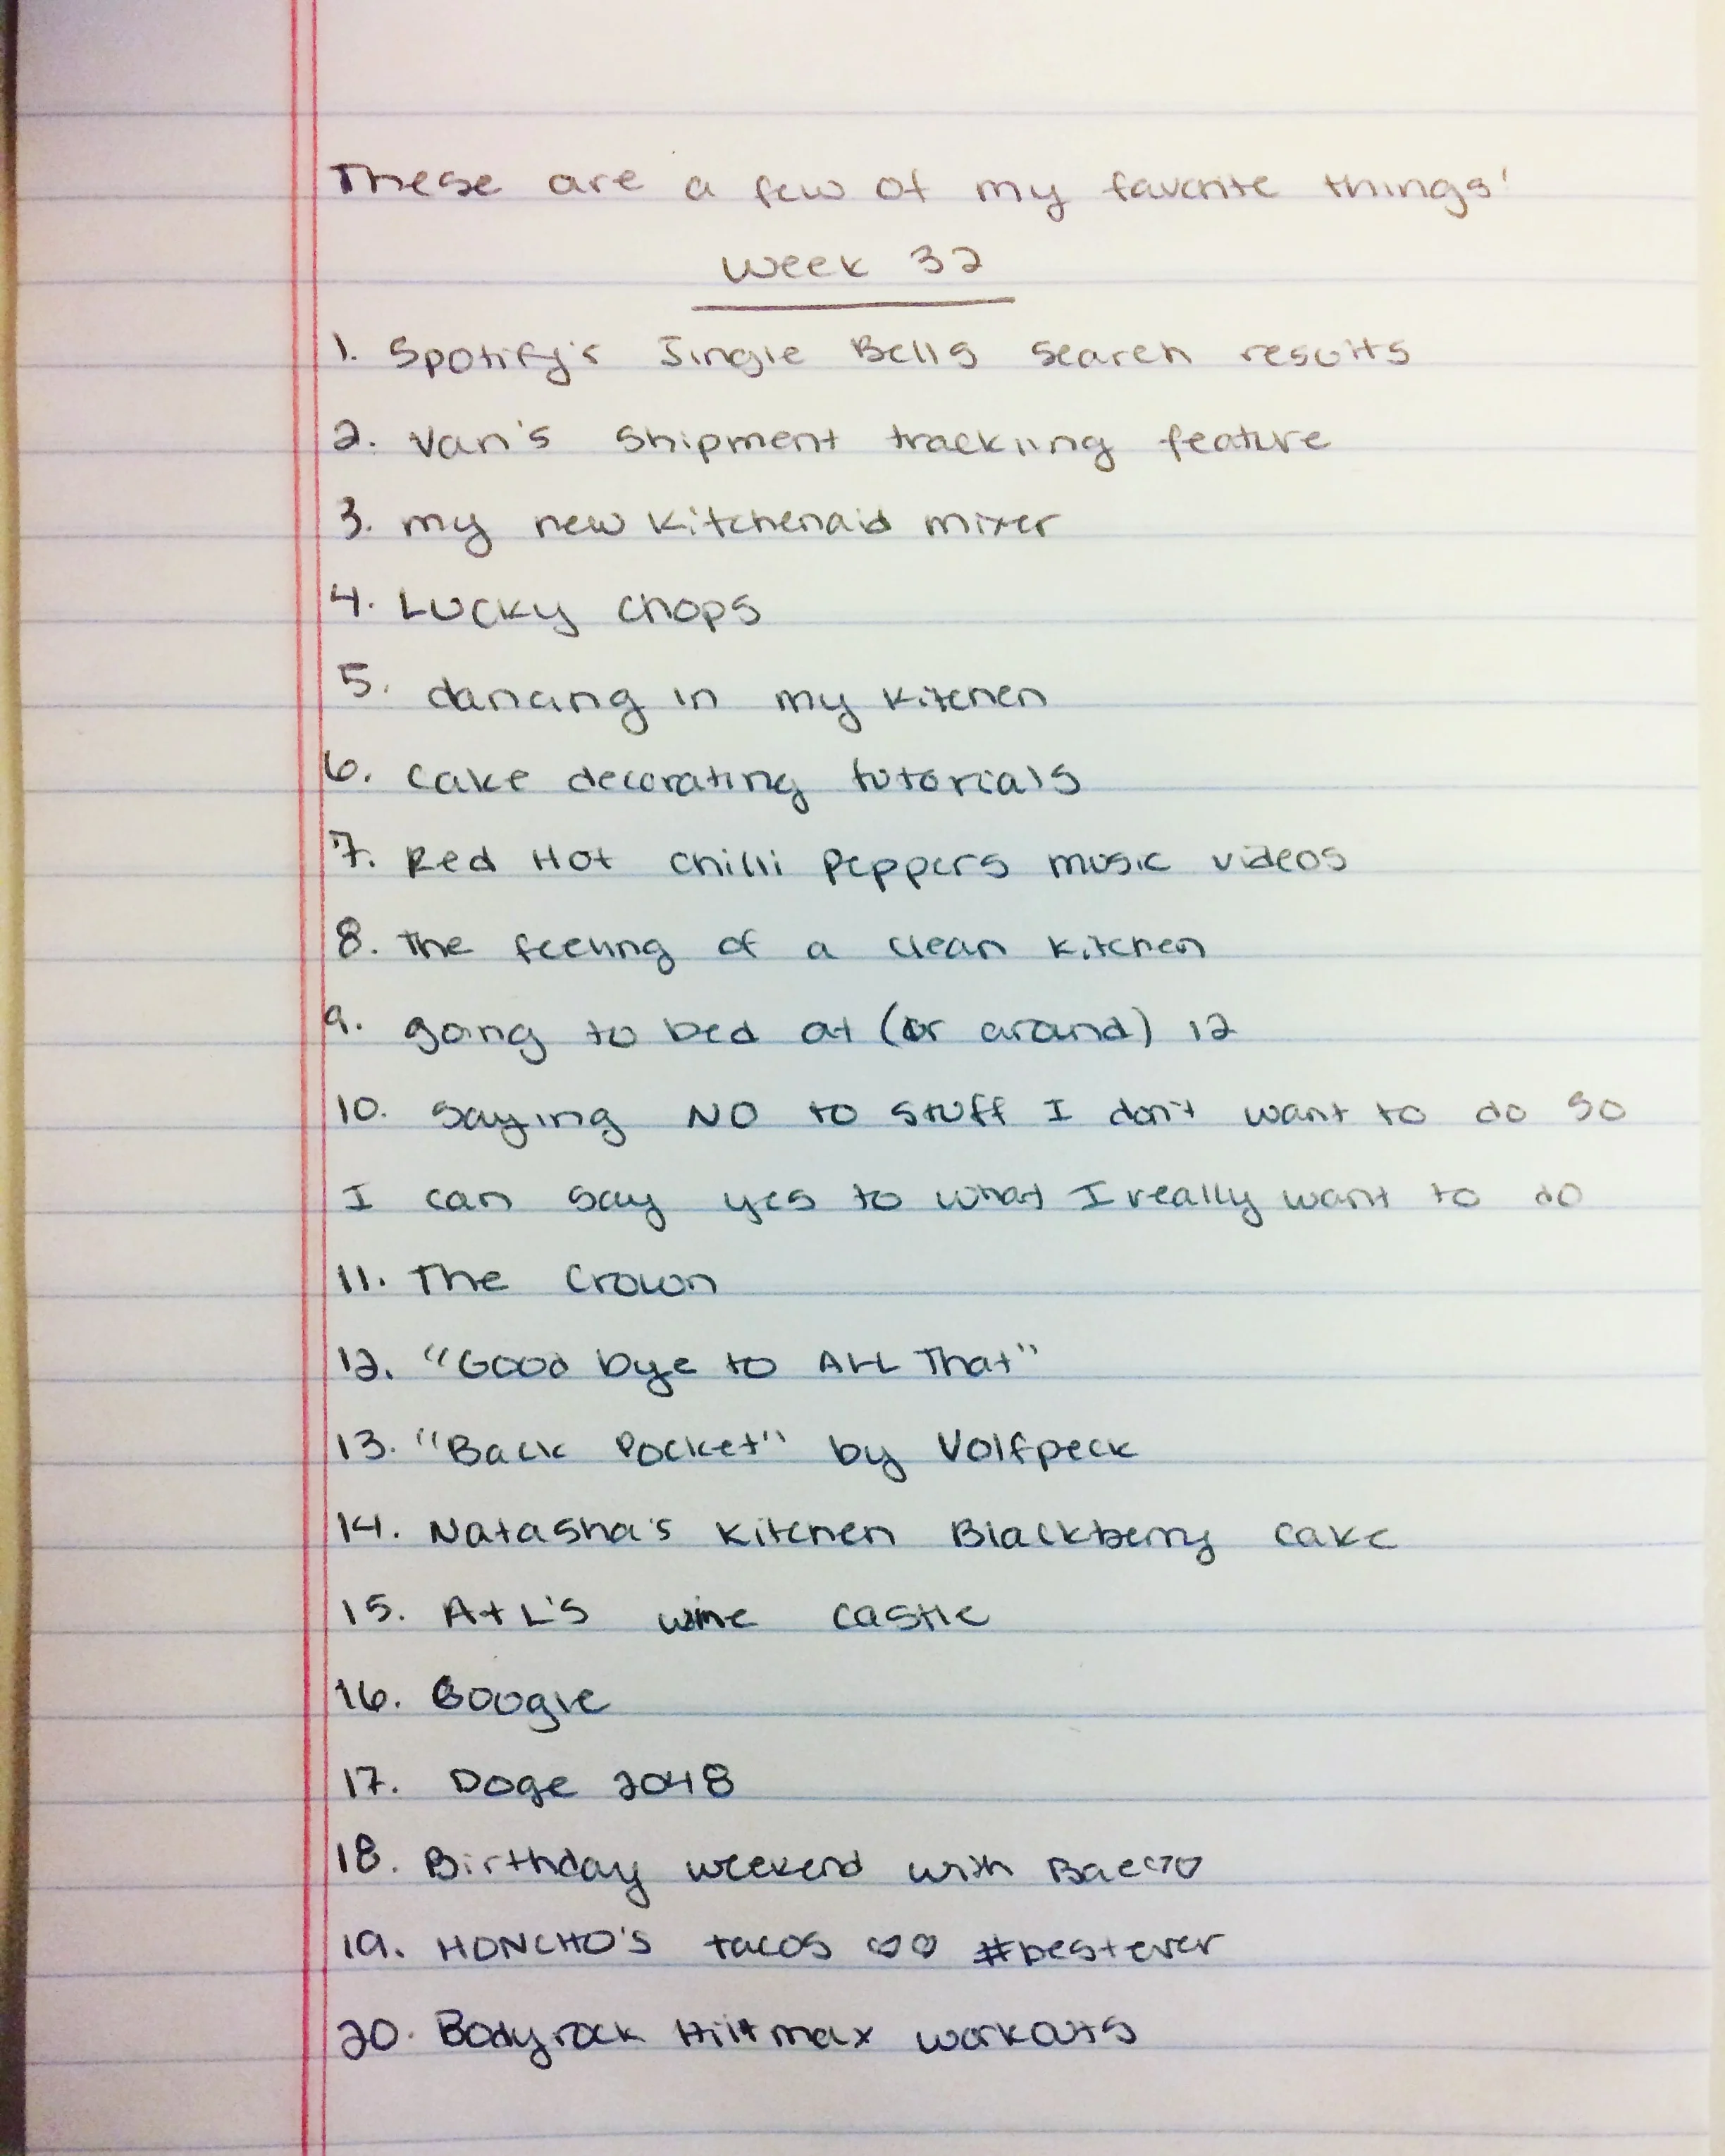 These are a few of my favorite things!
Week 32
1. Spotify's Jingle Bells search results
2. Van's Shipment tracking feature
3. my new Kitchenaid mixer
4. Lucky Chops
5. dancing in my kitchen
6. Cake decorating tutorials
7. Red Hot Chilli Peppers music videos
8. The feeling of a clean kitchen
9. going to bed at (or around) 12
10. Saying NO to stuff I don't want to do so
I can say yes to what I really want to do
11. The Crown
12. "Good bye to ALL That"
13. "Back Pocket" by Volfpeck
14. Natasha's Kitchen Blackberry cake
15. A+L's wine castle
16. Google
17. Doge 2048
18. Birthday weekend with Bae♡♡
19. HONCHO'S tacos ♡♡ #bestever
20. Bodyrock Hiitmax workouts